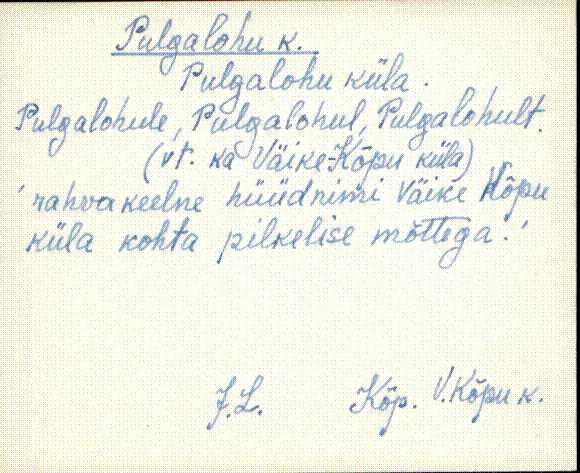 Pulgalohu k.
Pulgalohu küla.
Pulgalohule, Pulgalohul, Pulgalohult.
(vt. ka Väike-Kõpu küla)
'rahvakeelne hüüdnimi Väike Kõpu
küla kohta pilkelise mõttega.'
J.L. Kõp. V.Kõpu k.